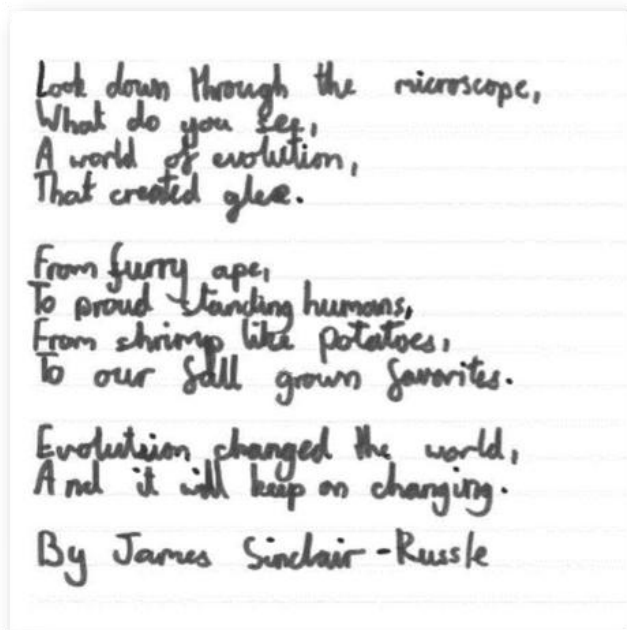 Look down through the microscope,
What do you see,
A world of evolution,
That created glee.
From furry ape,
To proud standing humans,
From shrimp like potatoes,
To our fall grown favorites.
Evolutsion changed the world,
And it will keep on changing.
By James Sinclair-Russle